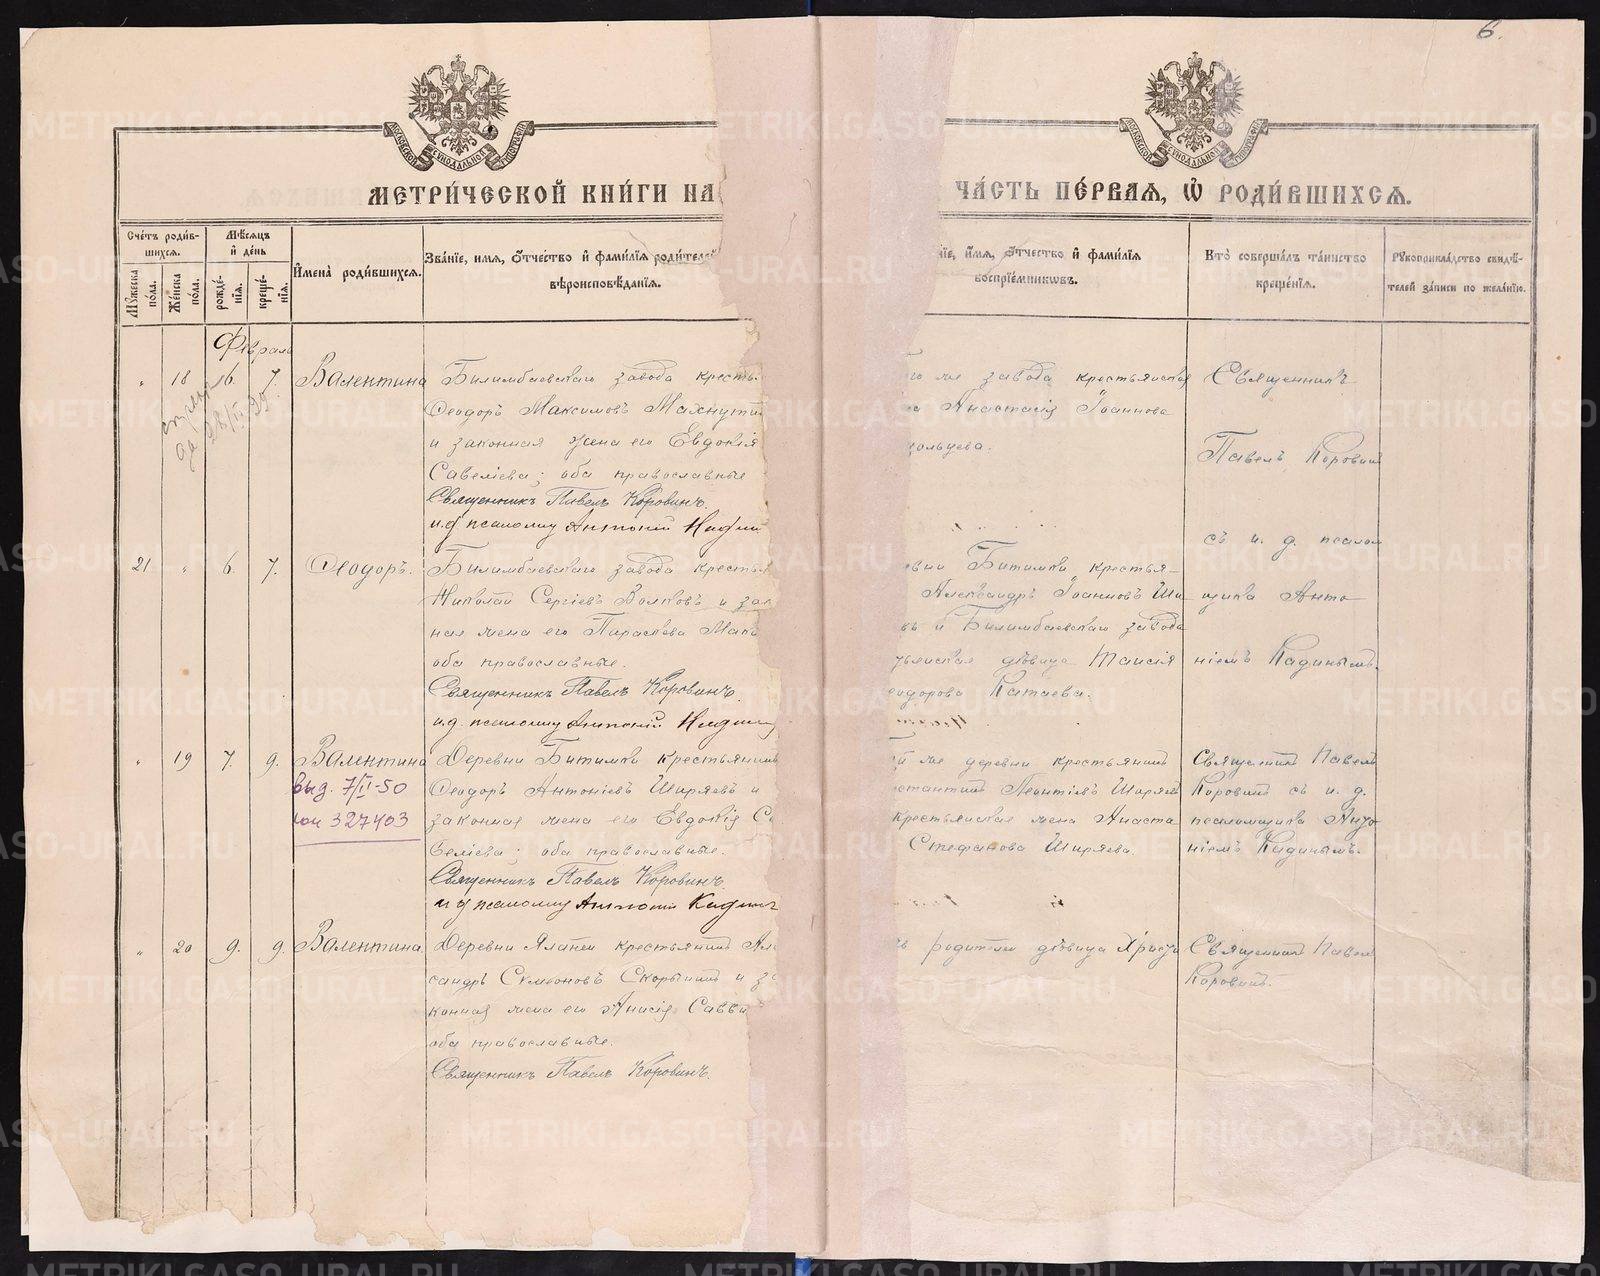 6.
МОСКОВСКОЙ СѴНОДАЛЬНОЙ ТИПОГРАФІИ
МОСКОВСКОЙ СѴНОДАЛЬНОЙ ТИПОГРАФІИ
МЕТРИ́ЧЕСКОЙ КНИ́ГИ НА
ЧА́СТЬ ПЕ́РВАЯ, Ѡ҆ РОДИ́ВШИХСѦ.
Сче́тъ роди́в-
шихся.
Мѣ́сяцъ
и҆ де́нь
Му́жеска
по́ла.
Же́нска
по́ла.
рожде́-
нїя.
креще́-
нїя.
И҆мена̀ роди́вшихся.
Зва́нїе, и́мя, ѻ҆́тчество и҆ фами́лїя роди́телей
вѣроисповѣ́данїя.
нїе, и́мя, ѻ҆́тчество и҆ фами́лїя
воспрїе́мниковъ.
Кто̀ соверша́лъ та́инство
креще́нїя.
Рукоприкла́дство свидѣ́-
телей за́писи по жела́нїю.
Февраль
" 18 6. 7. Валентина
Билимбаевскаго завода кресть-
Ѳеодоръ Максимовъ Махнутин
и законная жена его Евдокія
Савеліева; оба православные
Священникъ Павелъ Коровинъ.
и. д. псаломщ Антоній Кадин
го же завода крестьянская
Анастасія Іоаннова
Священникъ
Павелъ Коровинъ
съ и. д. псалом
щика Анто
ніемъ Кадинымъ.
21 " 6. 7. Ѳеодоръ.
Билимбаевскаго завода крестья
Николай Сергіевъ Волковъ и зак
ная жена его Параскева Мак
оба православные.
Священникъ Павелъ Коровинъ
и. д. псаломщ Антоній Кадин
вни Битимки крестья-
Александръ Іоанновъ Ши
въ и Билимбаевскаго завода
тьянская дѣвица Таисія
еодорова Катаева.
" 19 7. 9. Валентина
выд. 7/II-50
327403
Деревни Битимки крестьянинъ
Ѳеодоръ Антоніевъ Ширяевъ и
законная жена его Евдокія Са
веліева; оба православные.
Священникъ Павелъ Коровинъ
и д псаломщ Антоній Кадин
й же деревни крестьянинъ
стантинъ Леонтіевъ Ширяев
крестьянская жена Анаста
Стефанова Ширяева.
Священникъ Павелъ
Коровинъ съ и. д.
псаломщика Анто
ніемъ Кадинымъ.
" 20 9. 9. Валентина.
Деревни Яланки крестьянинъ Але
сандръ Симеоновъ Скорынинъ и за
конная жена его Анисія Савви
оба православные.
Священникъ Павелъ Коровинъ.
родители дѣвица Христи
Священникъ Павелъ
Коровинъ.
METRIKI.GASO-URAL.RU